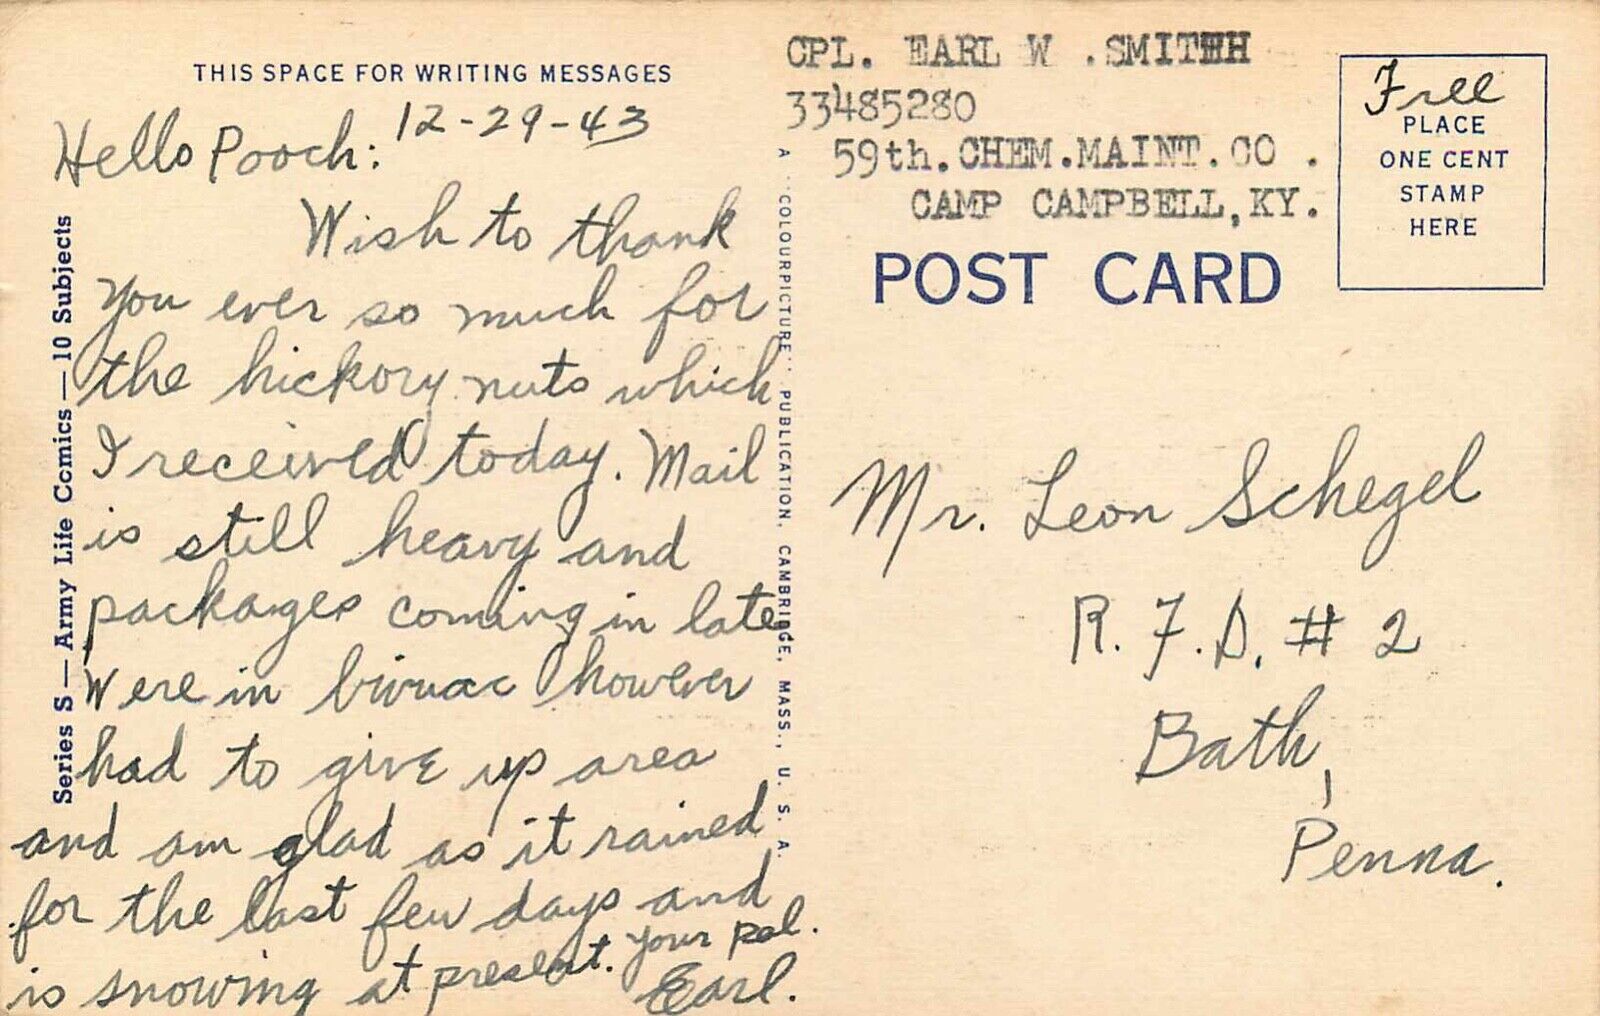 THIS SPACE FOR WRITING MESSAGES
12-29-43
Hello Pooch:
Wish to thank
You ever so much for
the hickory nuts which
I received today. Mail
is still heavy and
packages coming in late
Were in bivuac however
had to give up area
and am glad as it rained
for the last few days and
is snowing at present. Your pal.
Earl.
Series S — Army Life Comics — 10 Subjects
A "COLOURPICTURE" PUBLICATION, CAMBRIDGE, MASS., U. S. A.
CPL. EARL W .SMITHH
33485280
59th.CHEM.MAINT.CO .
CAMP CAMPBELL,KY.
POST CARD
Free
PLACE
ONE CENT
STAMP
HERE
Mr. Leon Schegel
R. F. D. # 2
Bath,
Penna.